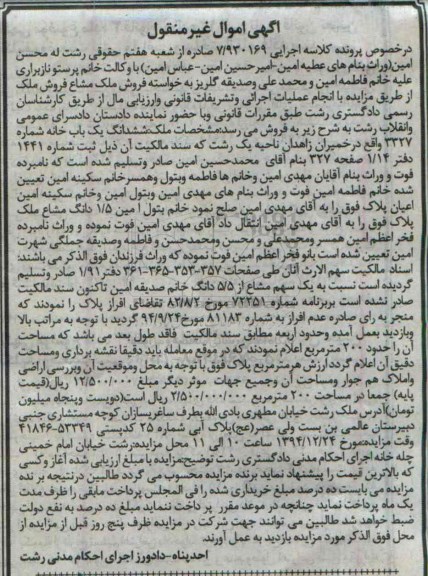 آگهی اموال غیر منقول
درخصوص پرونده کلاسه اجرایی ۷/۹۳۰۱۶۹ صادره از شعبه هفتم حقوقی رشت له محسن
امین(وراث بنام های عطیه امین-امیرحسین امین-عباس امین) با وکالت خانم پرستو نازبراری
علیه خانم فاطمه امین و محمد علی وصدیقه گلریز به خواسته فروش ملک مشاع فروش ملک
از طریق مزایده با انجام عملیات اجرائی وتشریفات قانونی وارزیابی مال از طریق کارشناسان
رسمی دادگستری رشت طبق مقررات قانونی وبا حضور نماینده دادستان دادسرای عمومی
وانقلاب رشت به شرح زیر به فروش می رسد:مشخصات ملک:ششدانگ یک باب خانه شماره
۳۳۲۷ واقع درخمیران زاهدان ناحیه یک رشت که سند مالکیت آن ذیل ثبت شماره ۱۴۴۱
دفتر ۱/۱۴ صفحه ۳۲۷ بنام آقای محمدحسین امین صادر وتسلیم شده است که نامبرده
فوت و وراث بنام آقایان مهدی امین وخانم ها فاطمه وبتول وهمسرخانم سکینه امین تعیین
شده خانم فاطمه امین فوت و وراث بنام های مهدی امین وبتول امین وخانم سکینه امین
اعیان پلاک فوق را به آقای مهدی امین صلح نمود خانم بتول امین ۱/۵ دانگ مشاع ملک
پلاک فوق را به آقای مهدی امین انتقال داد آقای مهدی امین فوت نموده و وراث نامبرده
فخر اعظم امین همسر ومحمدعلی و محسن ومحمدحسن و فاطمه وصدیقه جملگی شهرت
امین تعیین شده است بانو فخر اعظم امین فوت نموده که وراث فرزندان فوق الذکر می باشند:
اسناد مالکیت سهم الارث آنان طی صفحات ۳۵۳-۳۵۷-۳۶۱-۳۶۵ دفتر ۱/۹۱ صادر وتسلیم
گردیده است نسبت به یک سهم مشاع از ۵/۵ دانگ خانم صدیقه امین تاکنون سند مالکیت
صادر نشده است بربرنامه شماره ۷۲۲۵۱ مورخ ۸۲/۸/۲ تقاضای افراز پلاک را نمودند که
منجر به رای صادره عدم افراز به شماره ۸۱۱۸۳ مورخ ۹۴/۹/۲۴ گردید با توجه به مراتب بالا
وبازدید بعمل آمده وحدود اربعه مطابق سند مالکیت فاقد طول بعد می باشد که مساحت
آن را حدود ۲۰۰ مترمربع اعلام نمودند که در موقع معامله باید دقیقا نقشه برداری ومساحت
دقیق آن اعلام گردد ارزش هرمترمربع پلاک فوق با توجه به محل وموقعیت آن وبررسی اراضی
واملاک هم جوار ومساحت آن وجمیع جهات موثر دیگر مبلغ ۱۲/۵۰۰/۰۰۰ ریال(قیمت
پایه) جمعا در مساحت ۲۰۰ مترمربع ۲/۵۰۰/۰۰۰/۰۰۰ ریال است(دویست وپنجاه میلیون
تومان)آدرس ملک رشت خیابان مطهری بادی الله بطرف ساغریسازان کوچه مستشاری جنبی
دبیرستان عالمی بن بست ولی عصر(عج)پلاک آبی شماره ۲۵ کدپستی ۵۳۳۴۹-۴۱۸۴۶
وقت مزایده:مورخ ۱۳۹۴/۱۲/۲۴ ساعت ۱۰ الی ۱۱ محل مزایده:رشت خیابان امام خمینی
چله خانه اجرای احکام مدنی دادگستری رشت توضیح:مزایده با مبلغ ارزیابی شده آغاز وکسی
که بالاترین قیمت را پیشنهاد نماید برنده مزایده محسوب می گردد طالبین درنتیجه برنده
مزایده می بایست ده درصد مبلغ خریداری شده را فی المجلس پرداخت مابقی را ظرف مدت
یک ماه پرداخت نماید چنانچه در موعد مقرر پرداخت ننماید مبلغ ده درصد به نفع دولت
ضبط خواهد شد طالبین می توانند جهت شرکت در مزایده ظرف پنج روز قبل از مزایده از
محل فوق الذکر مورد مزایده بازدید به عمل آورند.
احدپناه-دادورز اجرای احکام مدنی رشت